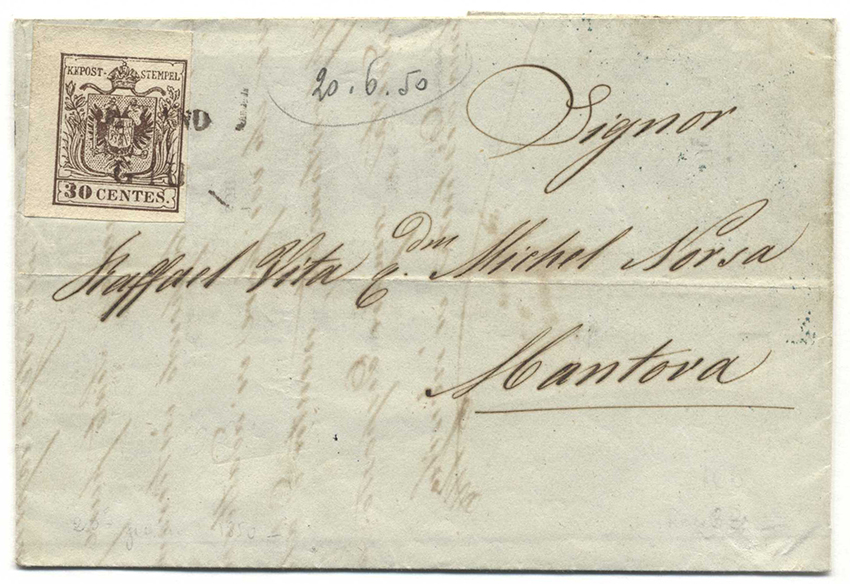 KKPOST-STEMPEL
30 CENTES.
20.6.50
Signor
Raffael Vita q. dm Michel Norsa
Mantova